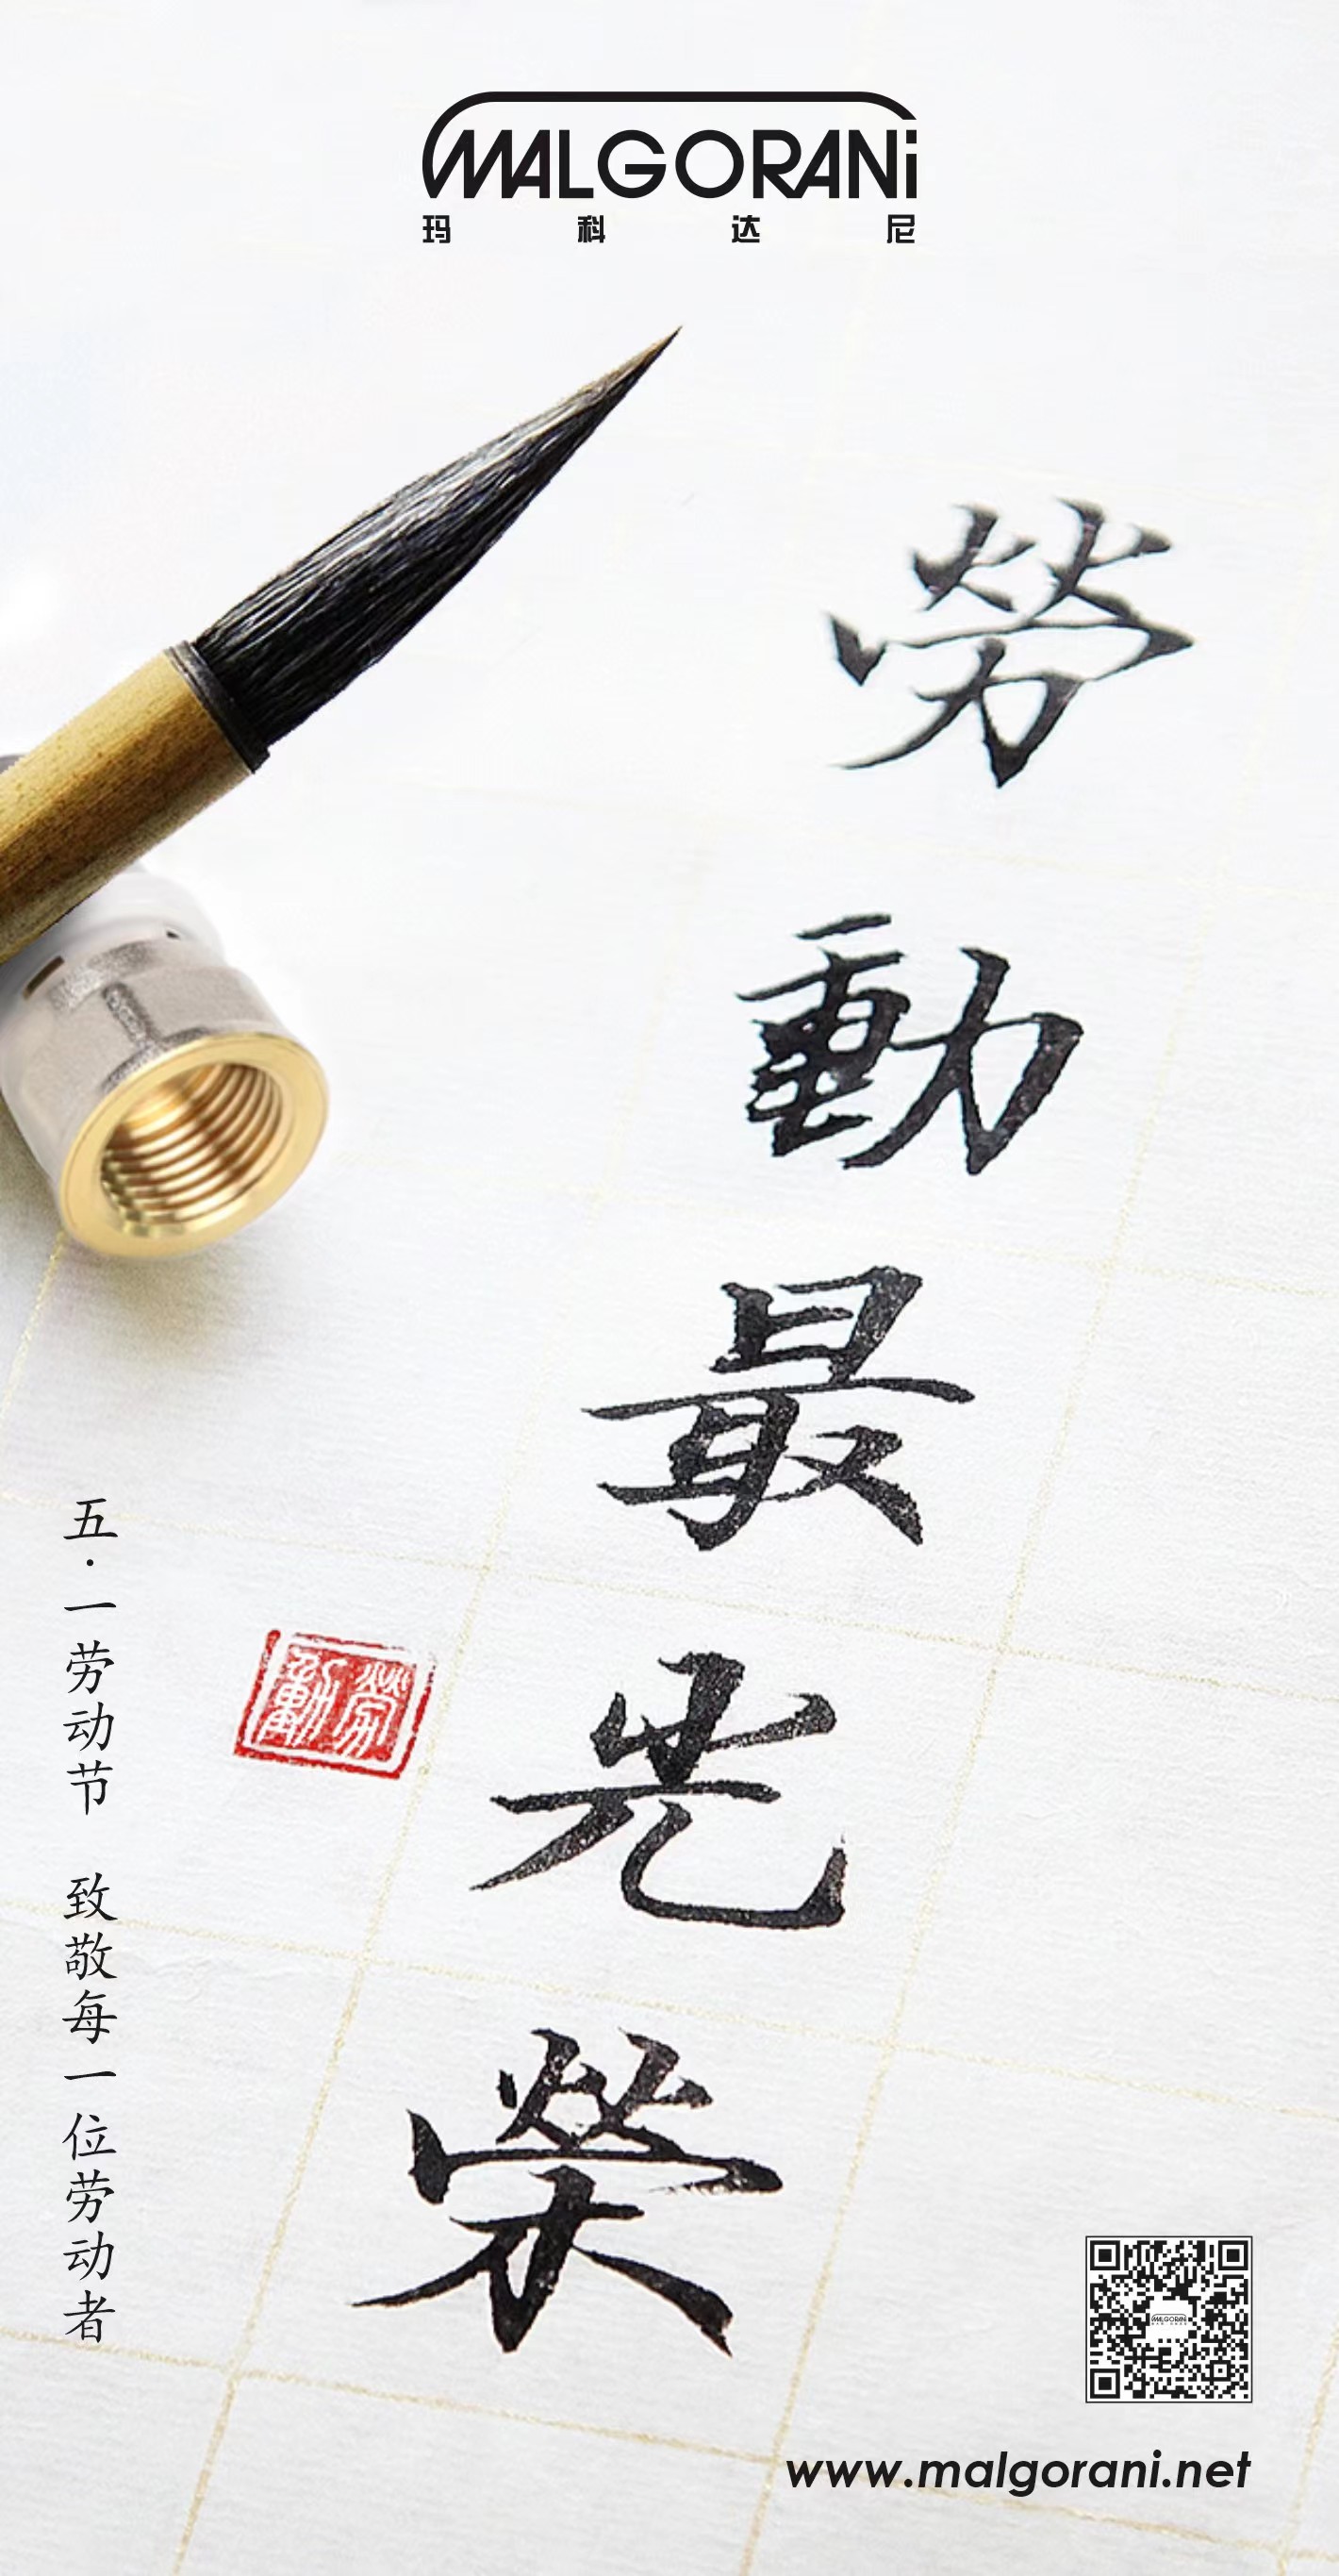 MALGORANi
玛科达尼
勞動最光榮
勞動
五·一劳动节 致敬每一位劳动者
MALGORANi
www.malgorani.net